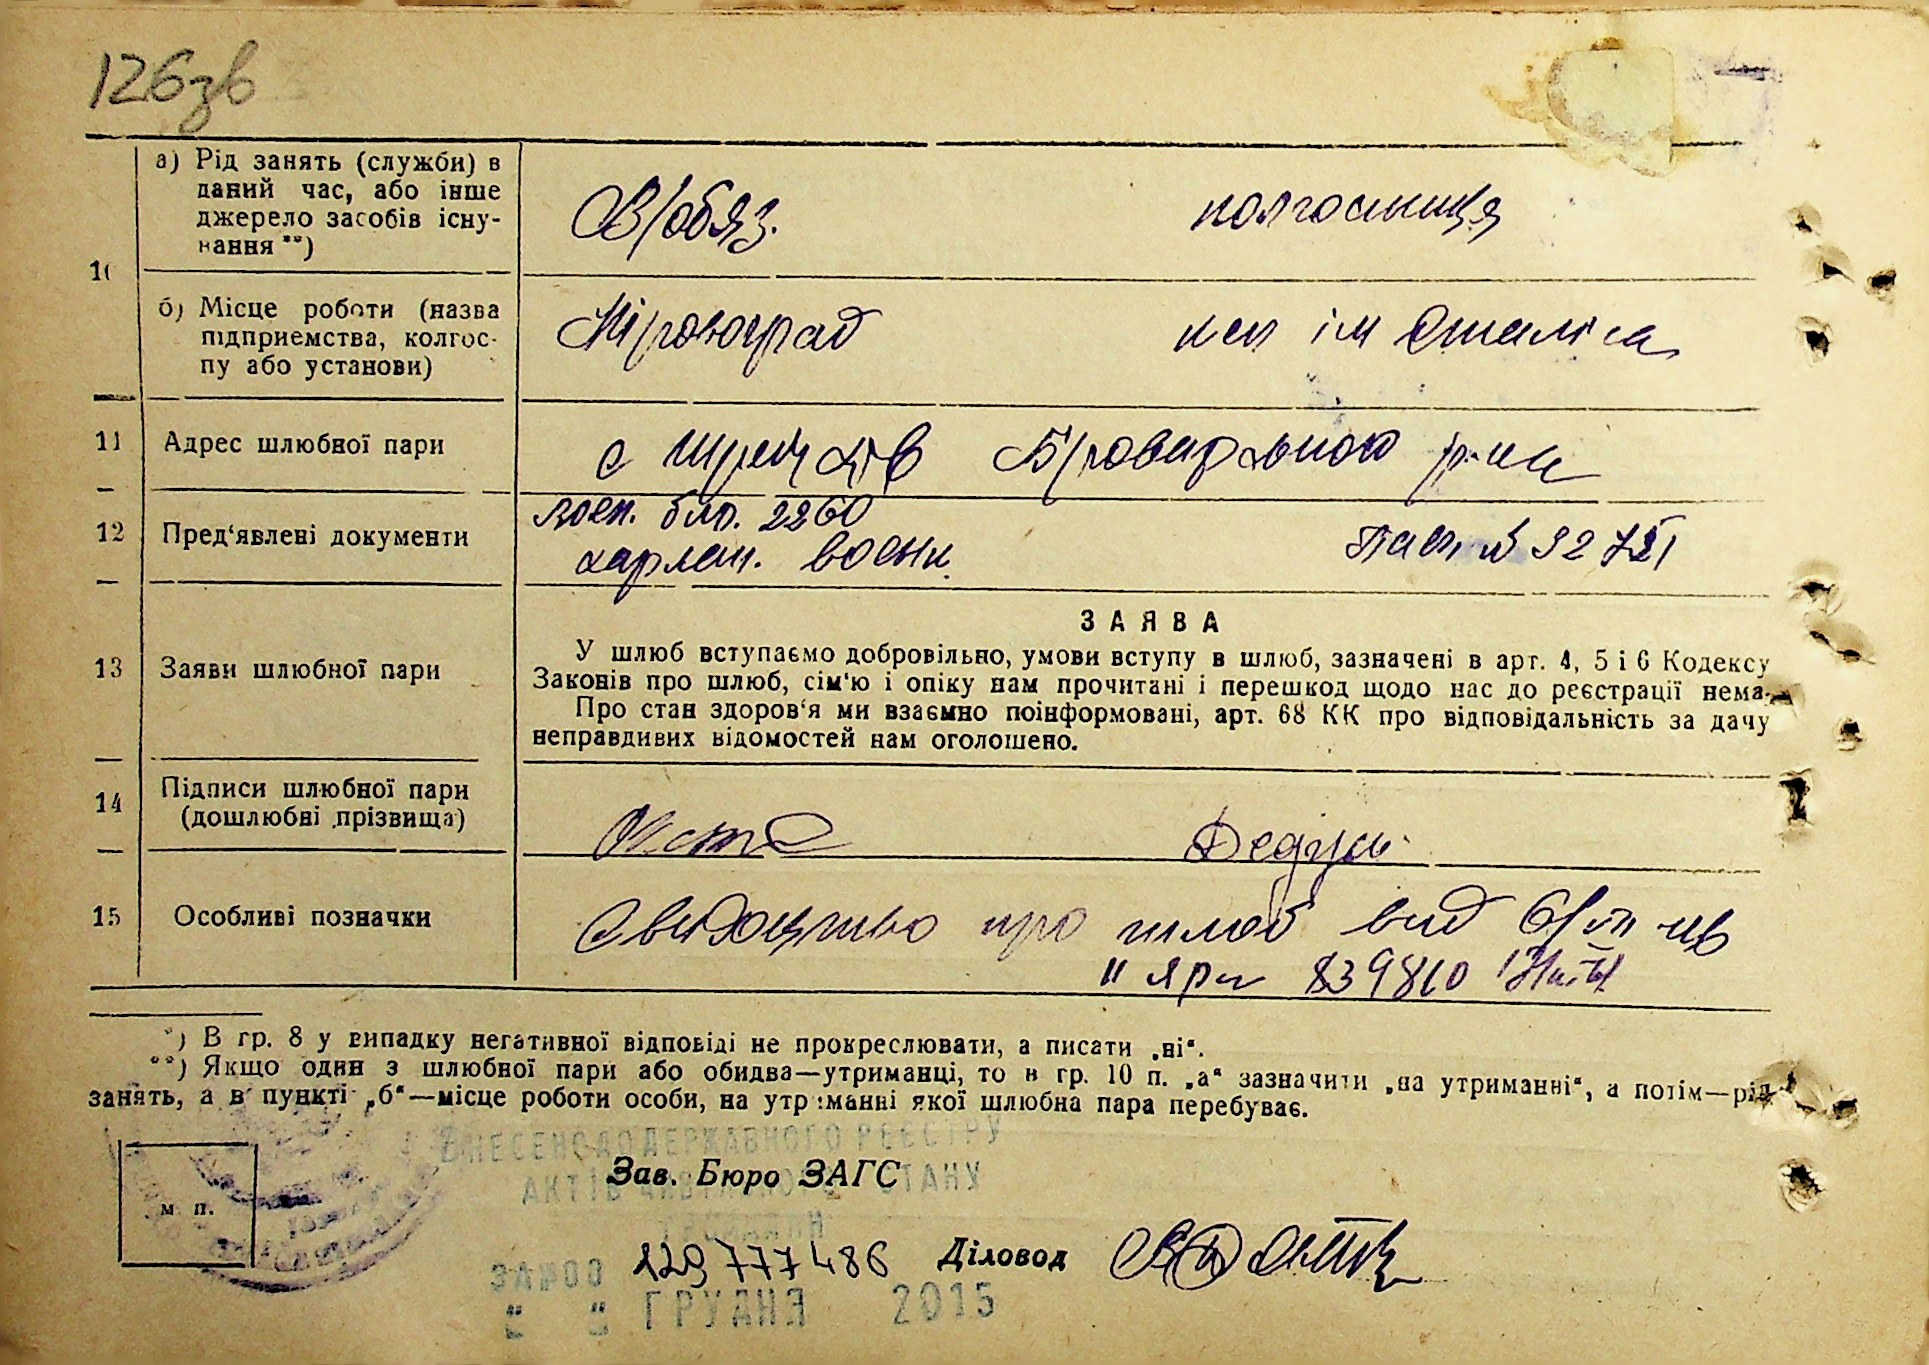 126зв
а) Рід занять (служби) в
даний час, або інше
джерело засобів існу-
вання **)
В/обяз.
колгоспниця
10
б) Місце роботи (назва
підприємства, колгос-
пу або установи)
Кіровоград
ім Сталіна
11 Адрес шлюбної пари
с Броварського р-ну
12 Пред'явлені документи
воен. бил. 2260
Пасп №
13 Заяви шлюбної пари
ЗАЯВА
У шлюб вступаємо добровільно, умови вступу в шлюб, зазначені в арт. 4, 5 і 6 Кодексу
Законів про шлюб, сім'ю і опіку нам прочитані і перешкод щодо нас до реєстрації нема.
Про стан здоров'я ми взаємно поінформовані, арт. 68 КК про відповідальність за дачу
неправдивих відомостей нам оголошено.
14 Підписи шлюбної пари
(дошлюбні прізвища)
15 Особливі позначки
Свидоцтво про шлюб вид
839810
*) В гр. 8 у випадку негативної відповіді не прокреслювати, а писати „ні“.
**) Якщо один з шлюбної пари або обидва—утриманці, то в гр. 10 п. „а“ зазначити „на утриманні“, а потім—рід
занять, а в пункті „б“—місце роботи особи, на утриманні якої шлюбна пара перебуває.
ВНЕСЕНО ДО ДЕРЖАВНОГО РЕЄСТРУ
АКТІВ ЦИВІЛЬНОГО СТАНУ
ГРОМАДЯН
Зав. Бюро ЗАГС
м. п.
ЗА №00 129777486
Діловод
" " ГРУДНЯ 2015